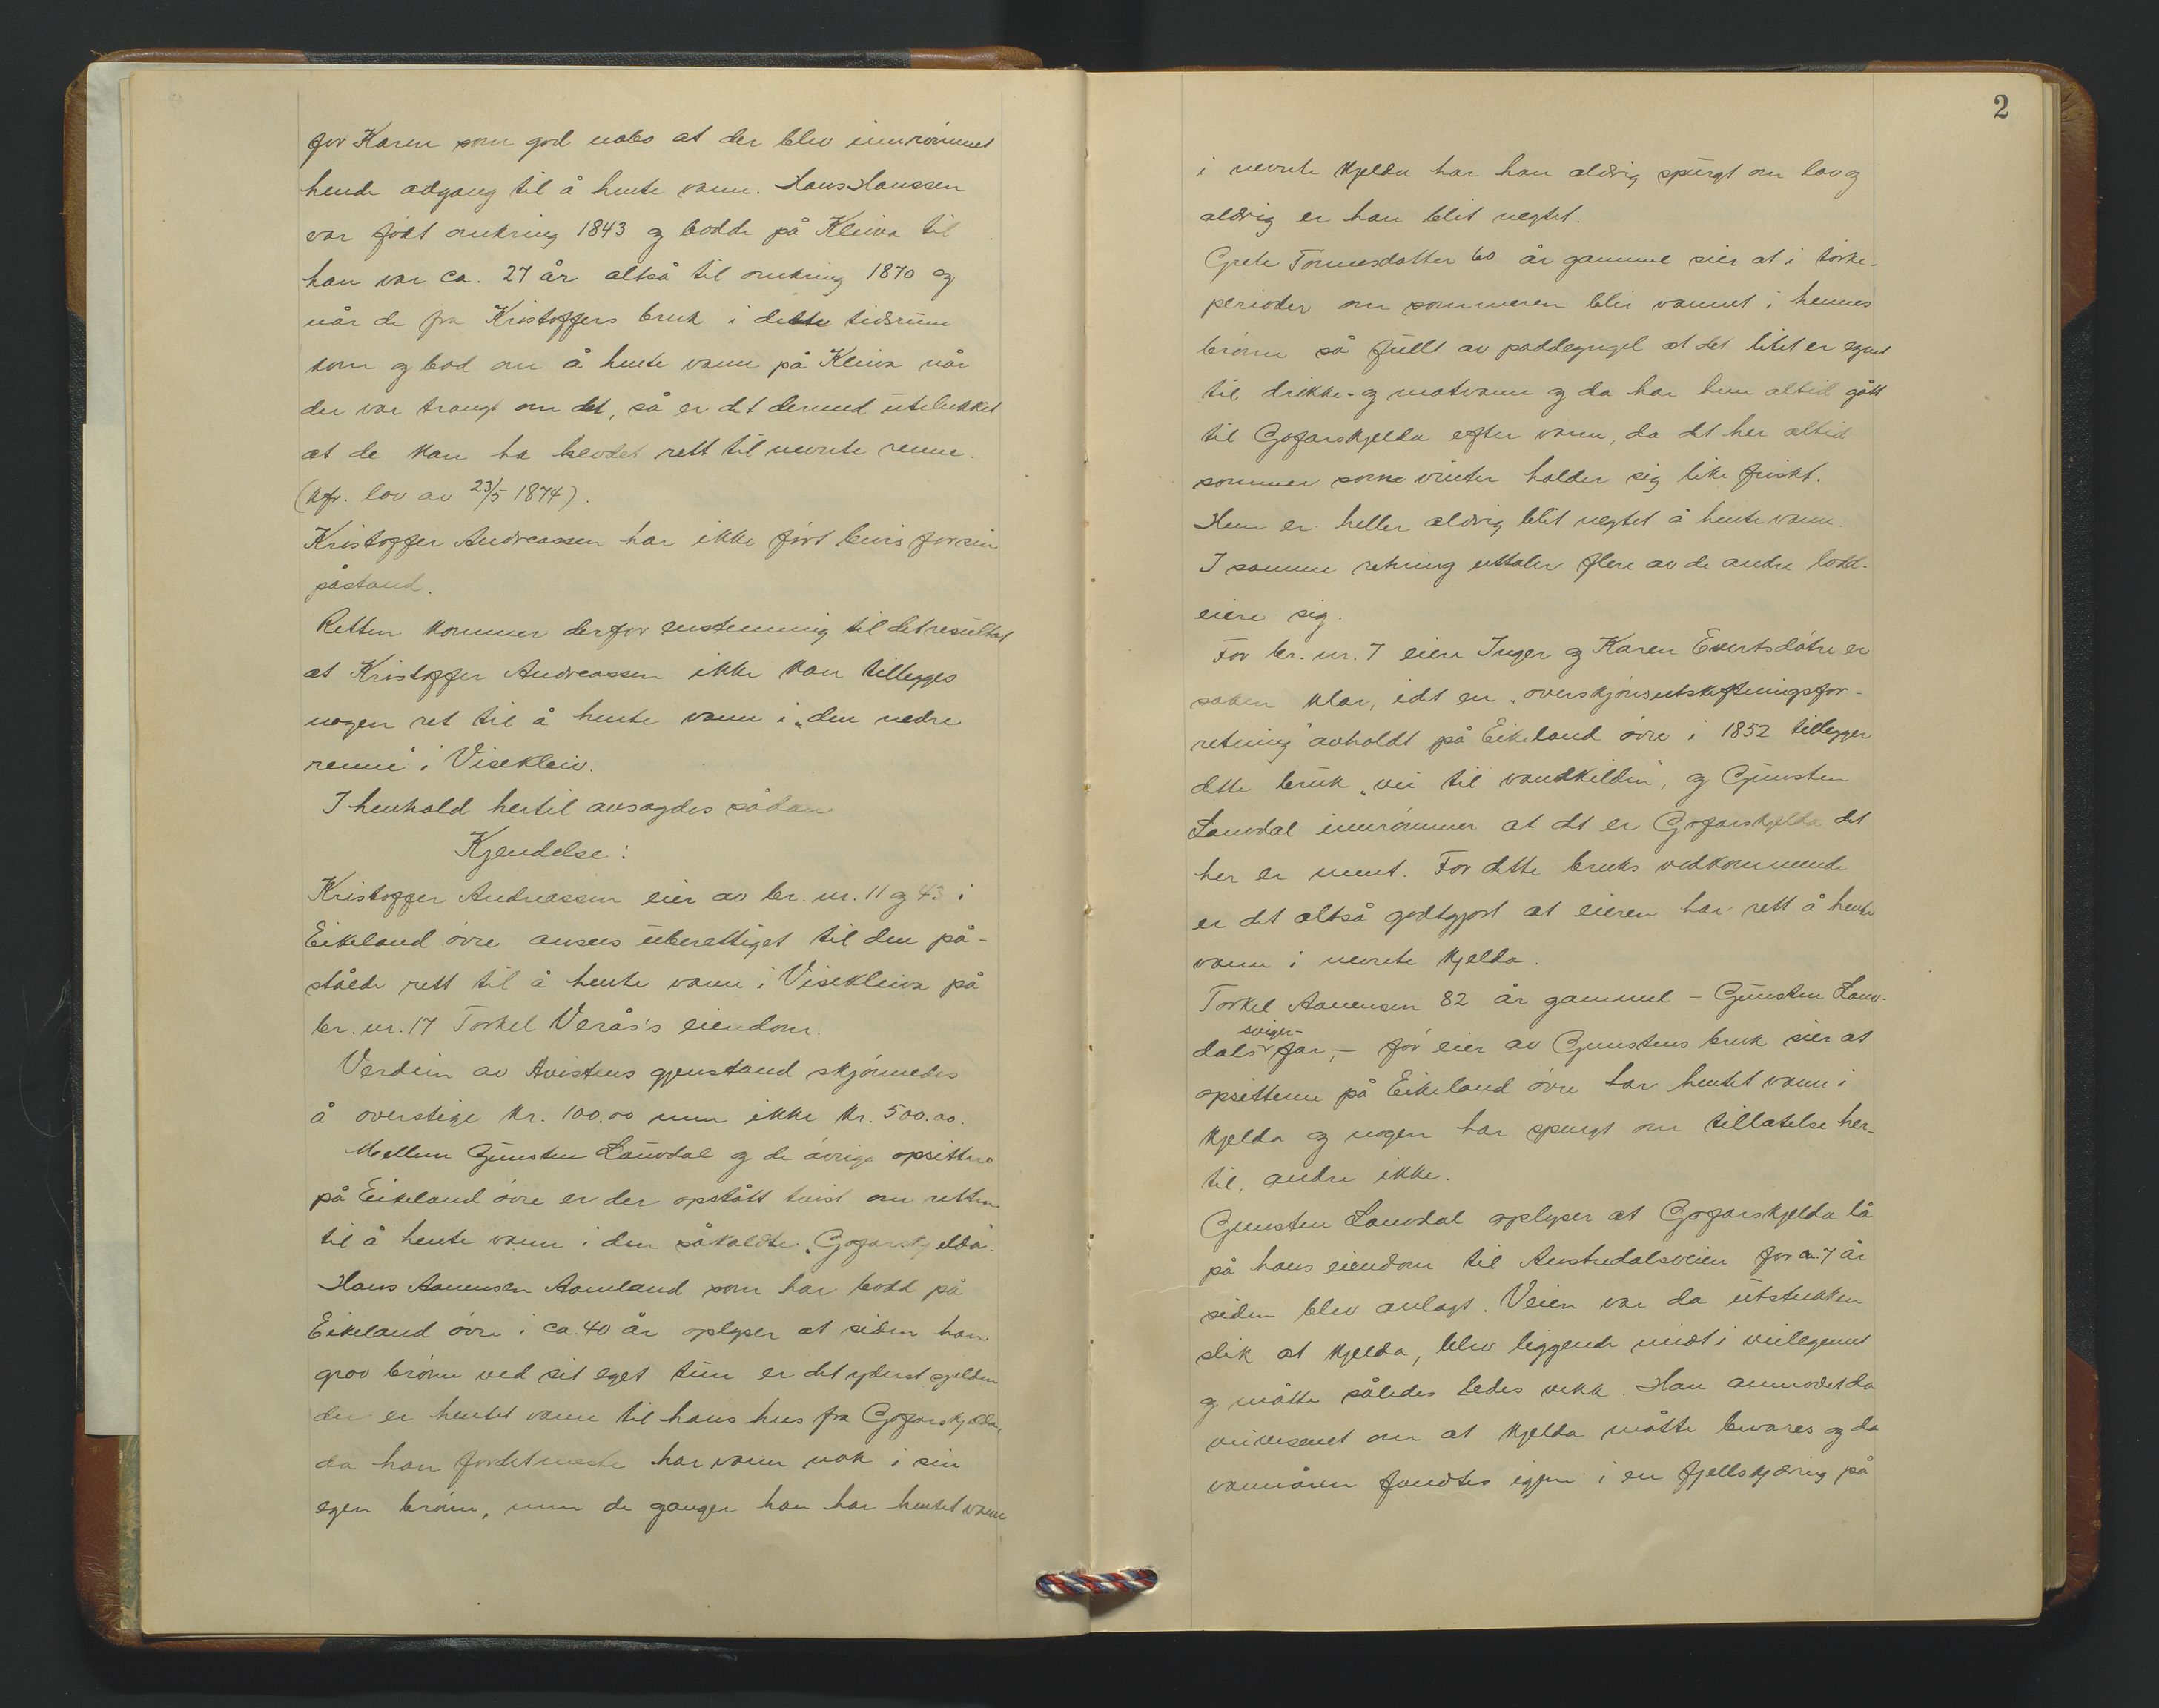 for Karen som god nabo at der blev innrømmet
hende adgang til å hente vann. Hans Hanssen
var født omkring 1843 og bodde på Kleiva til
han var ca. 27 år altså til omkring 1870 og
når de fra Kristoffers bruk i dette tidsrum
kom og bad om å hente vann på Kleiva når
der var trangt om det, så er det dermed utelukket
at de kan ha hevdet rett til nevnte renne.
(kfr. lov av 23/5 1874).
Kristoffer Andreassen har ikke ført bevis for sin
påstand.
Retten kommer derfor enstemmig til det resultat
at Kristoffer Andreassen ikke kan tillegges
nogen ret til å hente vann i „den nedre
renne" i Visekleiv.
I henhold hertil avsagdes sådan
Kjendelse:
Kristoffer Andreassen eier av br. nr. 11 og 43 i
Eikeland øvre ansees uberettiget til den på-
ståede rett til å hente vann i Visekleiva på
br. nr. 17 Torkel Verås's eiendom.
Verdien av tvistens gjenstand skjønnedes
å overstige kr. 100.00 men ikke kr. 500.00.
Mellem Gunsten Lauvdal og de øvrige opsittere
på Eikeland øvre er der opstått tvist om retten
til å hente vann i den såkaldte „Gofarskjelda".
Hans Aanensen Aamland som har bodd på
Eikeland øvre i ca. 40 år oplyser at siden han
grov brønn ved sit eget tun er det yderst sjelden
der er hentet vann til hans hus fra Gofarskjelda,
da han for det meste har vann nok i sin
egen brønn, men de ganger han har hentet vann
2
i nevnte kjelda har han aldrig spurgt om lov og
aldrig er han blit negtet.
Grete Tønnesdatter 60 år gammel sier at i tørke-
perioder om sommeren blir vannet i hennes
brønn så fullt av paddeyngel at det litet er egnet
til drikke- og matvann og da har hun altid gått
til Gofarskjelda efter vann, da det her altid
sommer som vinter holder sig like friskt.
Hun er heller aldrig blit negtet å hente vann.
I samme retning uttaler flere av de andre lodd-
eiere sig.
For br. nr. 7 eiere Inger og Karen Evertsdøtre er
saken klar, idet en „overskjønsutskiftningsfor-
retning" avholdt på Eikeland øvre i 1852 tillegger
dette bruk „vei til vandkilden", og Gunsten
Lauvdal innrømmer at det er Gofarskjelda det
her er ment. For dette bruks vedkommende
er det altså godtgjort at eieren har rett å hente
vann i nevnte kjelda.
Torkel Aanensen 82 år gammel – Gunsten Lauv-
dals sviger-far, – før eier av Gunstens bruk sier at
opsitterne på Eikeland øvre har hentet vann i
kjelda og nogen har spurgt om tillatelse her-
til, andre ikke.
Gunsten Lauvdal oplyser at Gofarskjelda lå
på hans eiendom til Austredalsveien for ca. 7 år
siden blev anlagt. Veien var da utstukken
slik at kjelda, blev liggende midt i veilegemet
og måtte således ledes vekk. Han anmodet da
veivesenet om at kjelda måtte bevares og da
vannåren fandtes igjen i en fjellskjæring på